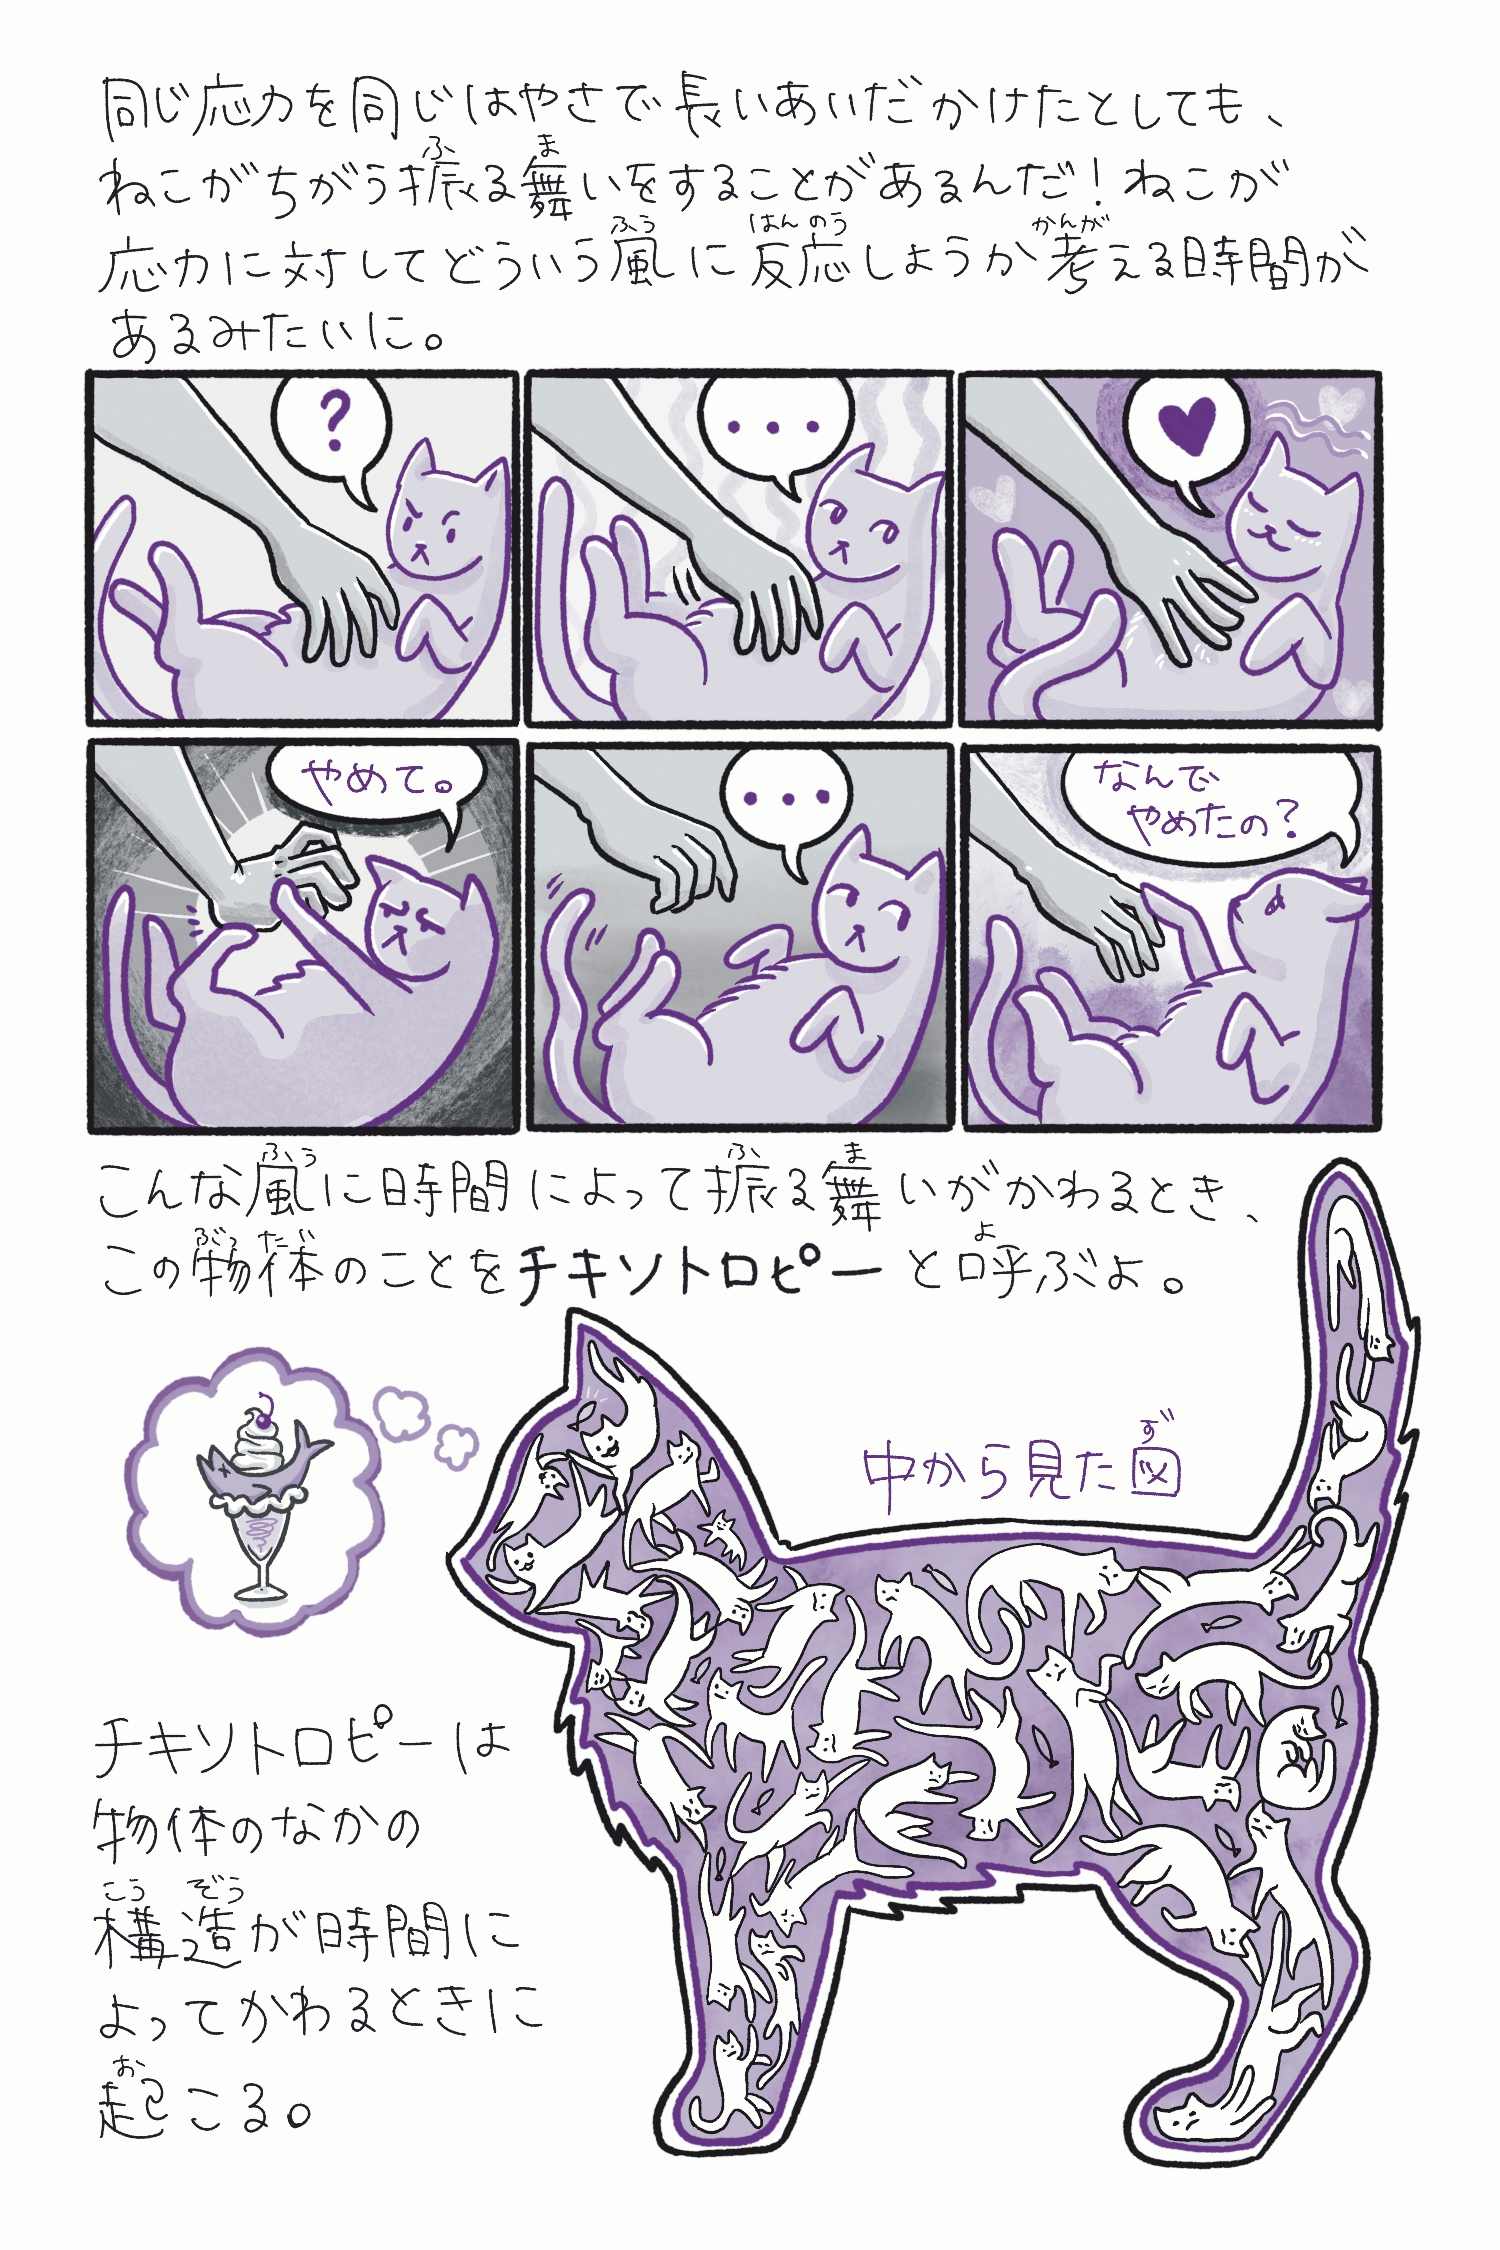 同じ応力を同じはやさで長いあいだかけたとしても、
ねこがちがう振る舞いをすることがあるんだ！ねこが
応力に対してどういう風に反応しようか考える時間が
あるみたいに。
?
...
♥
やめて。
...
なんで
やめたの？
こんな風に時間によって振る舞いがかわるとき、
この物体のことをチキソトロピーと呼ぶよ。
中から見た図
チキソトロピーは
物体のなかの
構造が時間に
よってかわるときに
起こる。